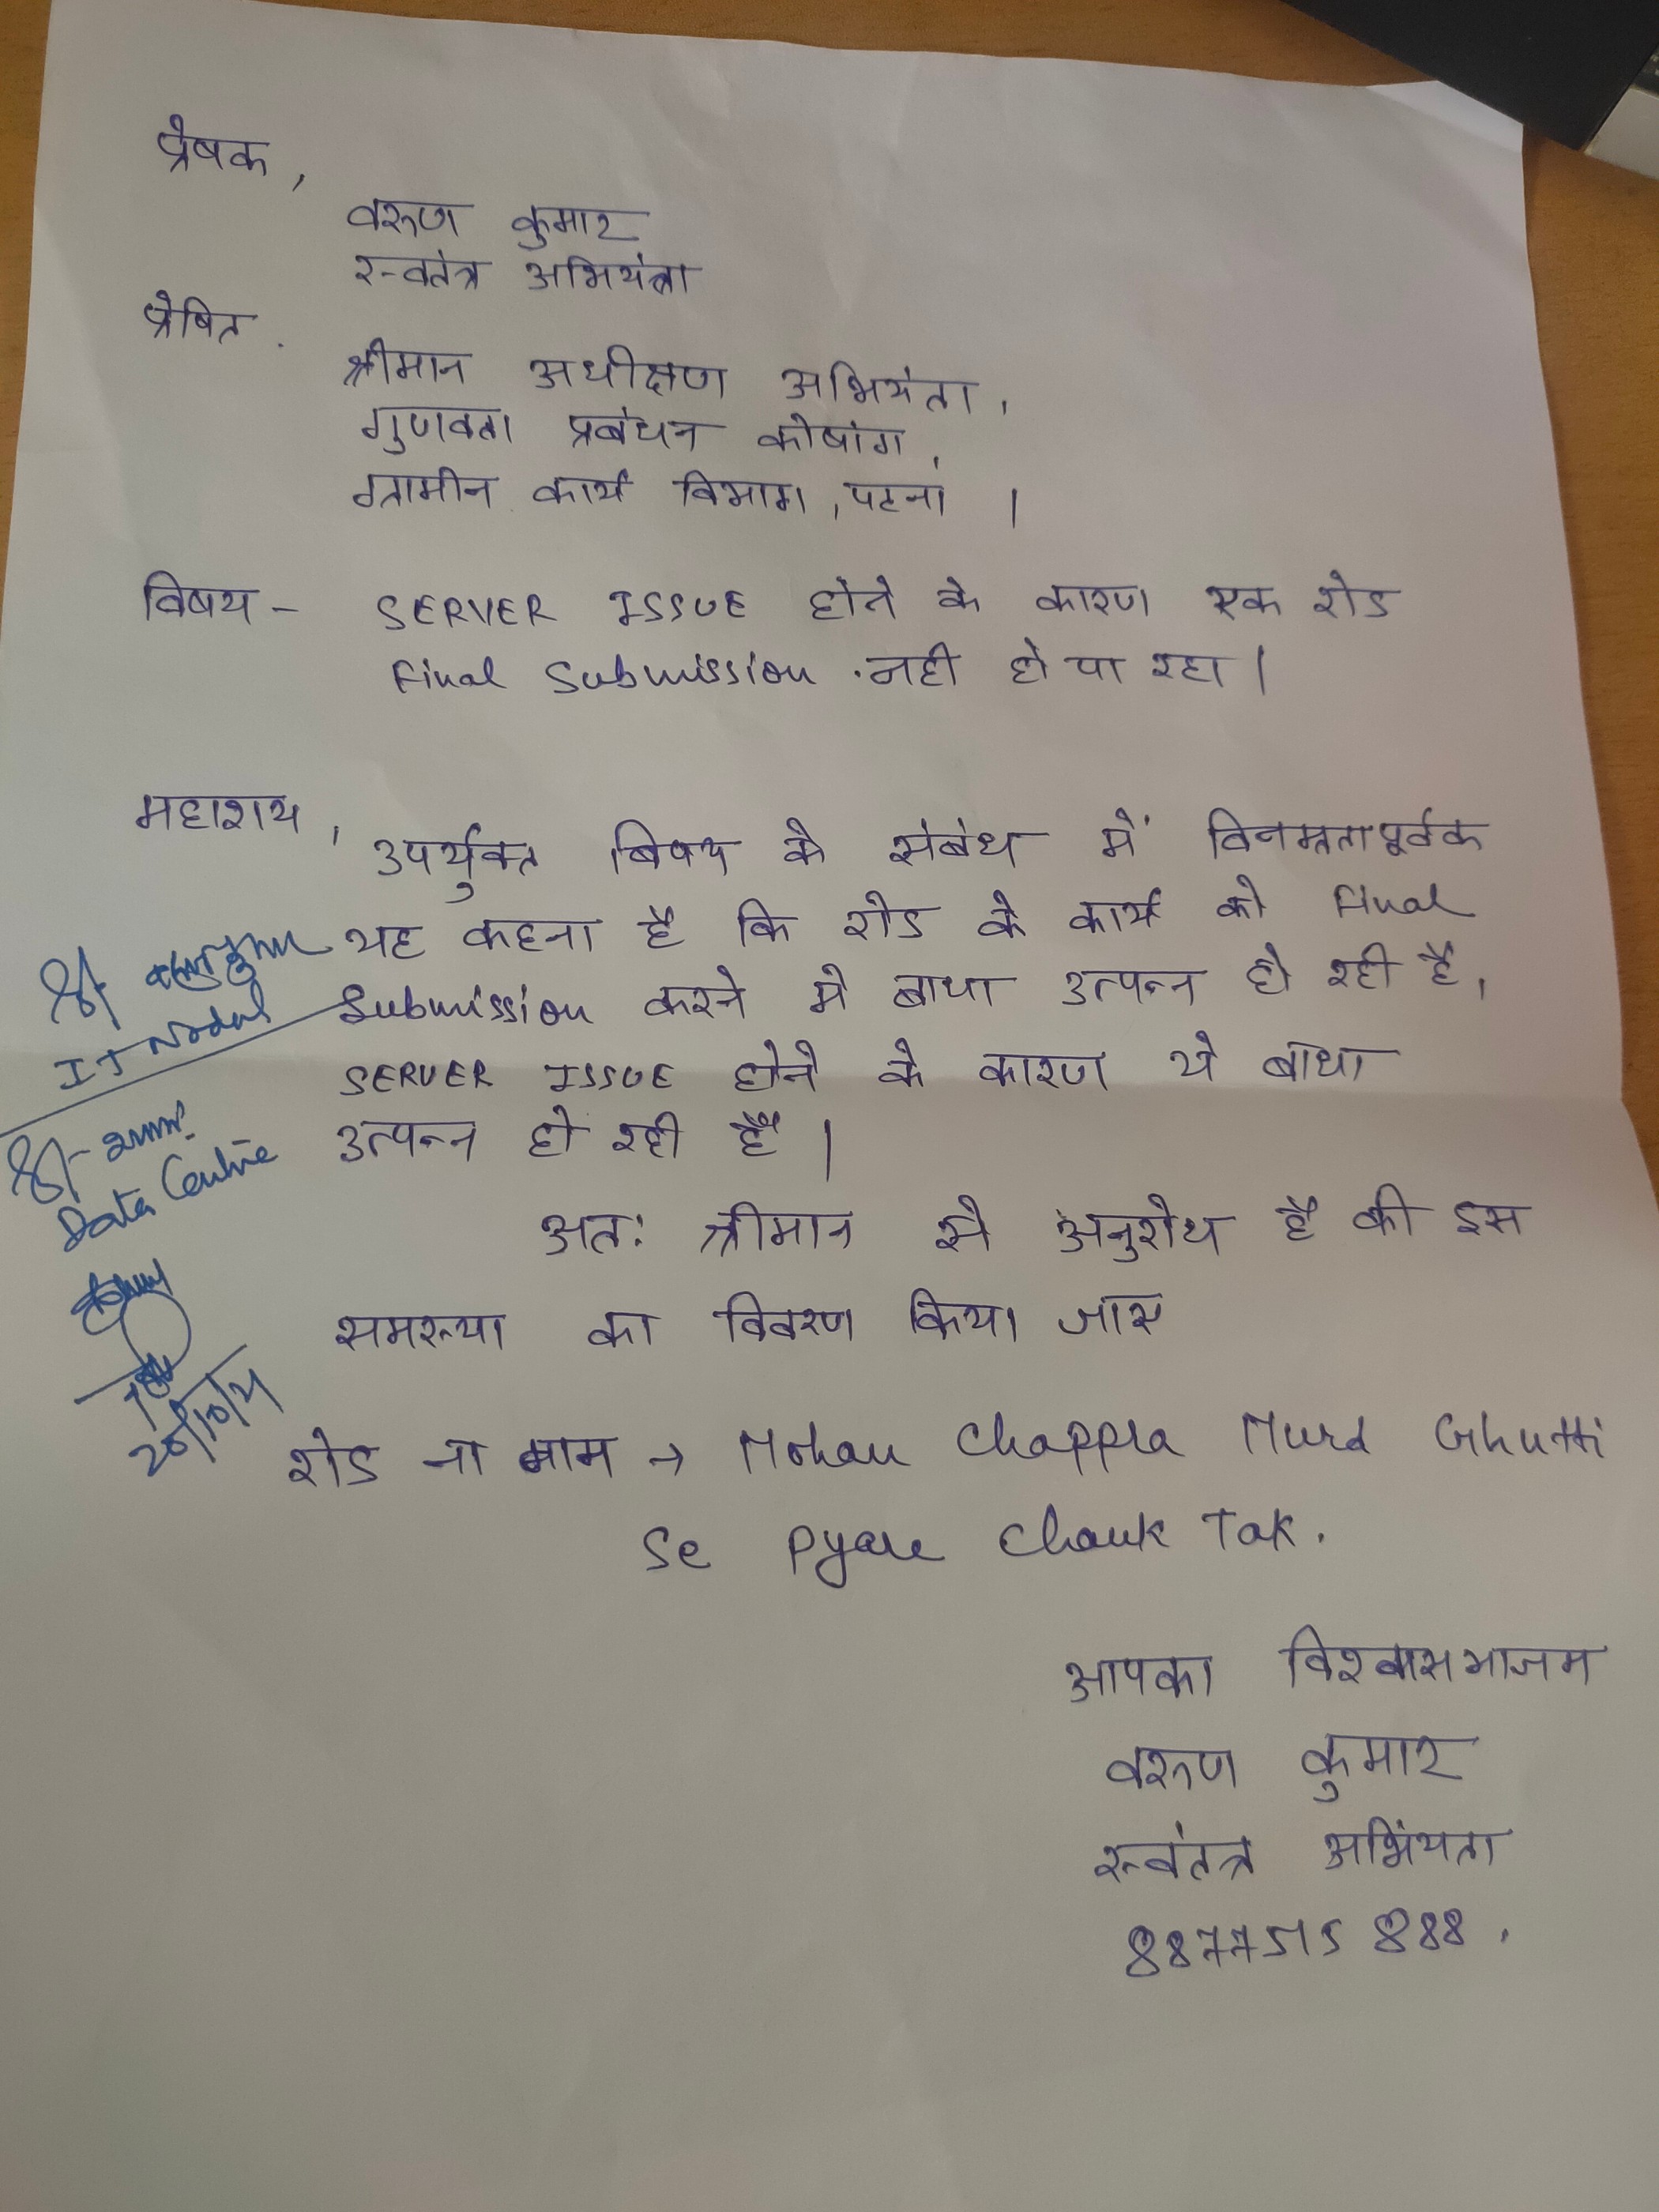 प्रेषक,
वरुण कुमार
स्वतंत्र अभियंता
प्रेषित.
श्रीमान अधीक्षण अभियंता,
गुणवता प्रबंधन कोषांग,
ग्रामीन कार्य विभाग, पटना ।
विषय - SERVER ISSUE होने के कारण एक रोड
Final Submission नही हो पा रहा ।
महाशय,
उपर्युक्त विषय के संबंध में विनम्रतापूर्वक
यह कहना है कि रोड के कार्य को Final
Submission करने मे बाधा उत्पन्न हो रही है,
SERVER ISSUE होने के कारण ये बाधा
उत्पन्न हो रही है ।
अतः श्रीमान से अनुरोध है की इस
समस्या का विवरण किया जाए
रोड ना नाम → Mohan Chappra Murd Ghutti
Se Pyare Chauk Tak.
आपका विश्वासभाजम
वरुण कुमार
स्वंतत्र अभिंयता
8877515888.
IT Nodal
Data Centre